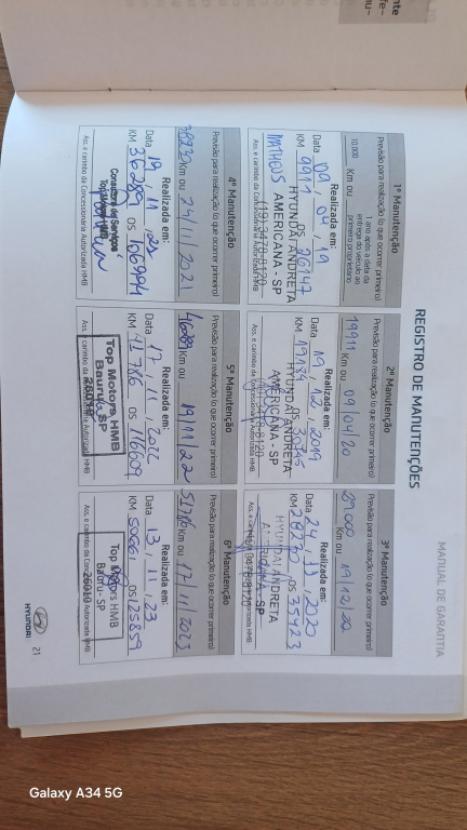 MANUAL DE GARANTIA
REGISTRO DE MANUTENÇÕES
1ª Manutenção
Previsão para realização (o que ocorrer primeiro)
10.000 Km ou
1 ano após a data da
entrega do veículo ao
primeiro proprietário
Realizada em:
Data 09, 04, 19
KM 9911 OS 26147
HYUNDAI ANDRETA
MATHEUS AMERICANA - SP
Ass. e carimbo da Concessionária Autorizada HMB
2ª Manutenção
Previsão para realização (o que ocorrer primeiro)
19911 Km ou 09/04/20
Realizada em:
Data 19, 12, 2019
KM 19134 OS
HYUNDAI ANDRETA
AMERICANA - SP
Ass. e carimbo da Concessionária Autorizada HMB
3ª Manutenção
Previsão para realização (o que ocorrer primeiro)
29000 Km ou 19/12/20
Realizada em:
Data 24, 2020
KM 28230 OS 35423
HYUNDAI ANDRETA
AMERICANA - SP
Ass. e carimbo da Concessionária Autorizada HMB
4ª Manutenção
Previsão para realização (o que ocorrer primeiro)
38230 Km ou 24/11/2021
Realizada em:
Data 19, 11,
KM 36289 OS 106994
Consultora de Serviços
Ass. e carimbo da Concessionária Autorizada HMB
5ª Manutenção
Previsão para realização (o que ocorrer primeiro)
46289 Km ou 19/11/22
Realizada em:
Data 17, 11, 2022
KM 41786 OS 116609
Top Motors HMB
Bauru - SP
Ass. e carimbo da Concessionária Autorizada HMB
6ª Manutenção
Previsão para realização (o que ocorrer primeiro)
51786 Km ou 17/11/2023
Realizada em:
Data 13, 11, 23
KM 50661 OS 125859
Top Motors HMB
Bauru - SP
26010
Ass. e carimbo da Concessionária Autorizada HMB
HYUNDAI 21
Galaxy A34 5G